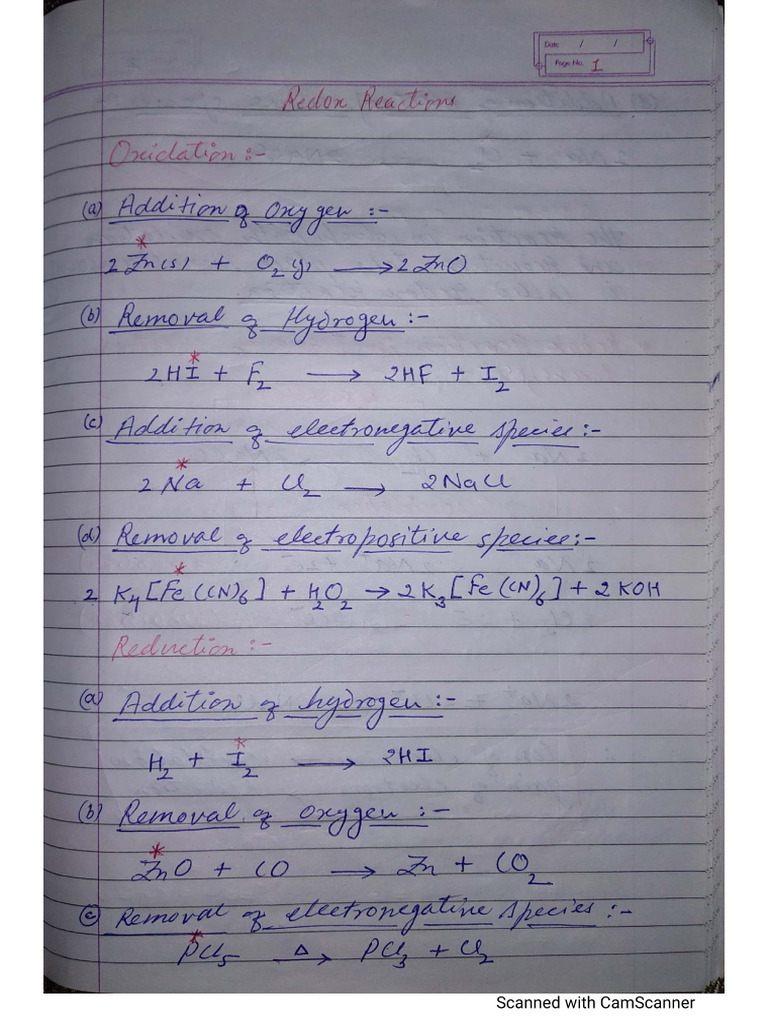 Date / /
Page No. 1
Redox Reactions
Oxidation :-
(a) Addition of Oxygen :-
2 Zn(s) + O2(g) → 2 ZnO
(b) Removal of Hydrogen :-
2HI + F2 → 2HF + I2
(c) Addition of electronegative species :-
2 Na + Cl2 → 2NaCl
(d) Removal of electropositive species :-
2 K4[Fe(CN)6] + H2O2 → 2K3[Fe(CN)6] + 2KOH
Reduction :-
(a) Addition of hydrogen :-
H2 + I2 → 2HI
(b) Removal of oxygen :-
ZnO + CO → Zn + CO2
(c) Removal of electronegative species :-
PCl5 Δ→ PCl3 + Cl2
Scanned with CamScanner